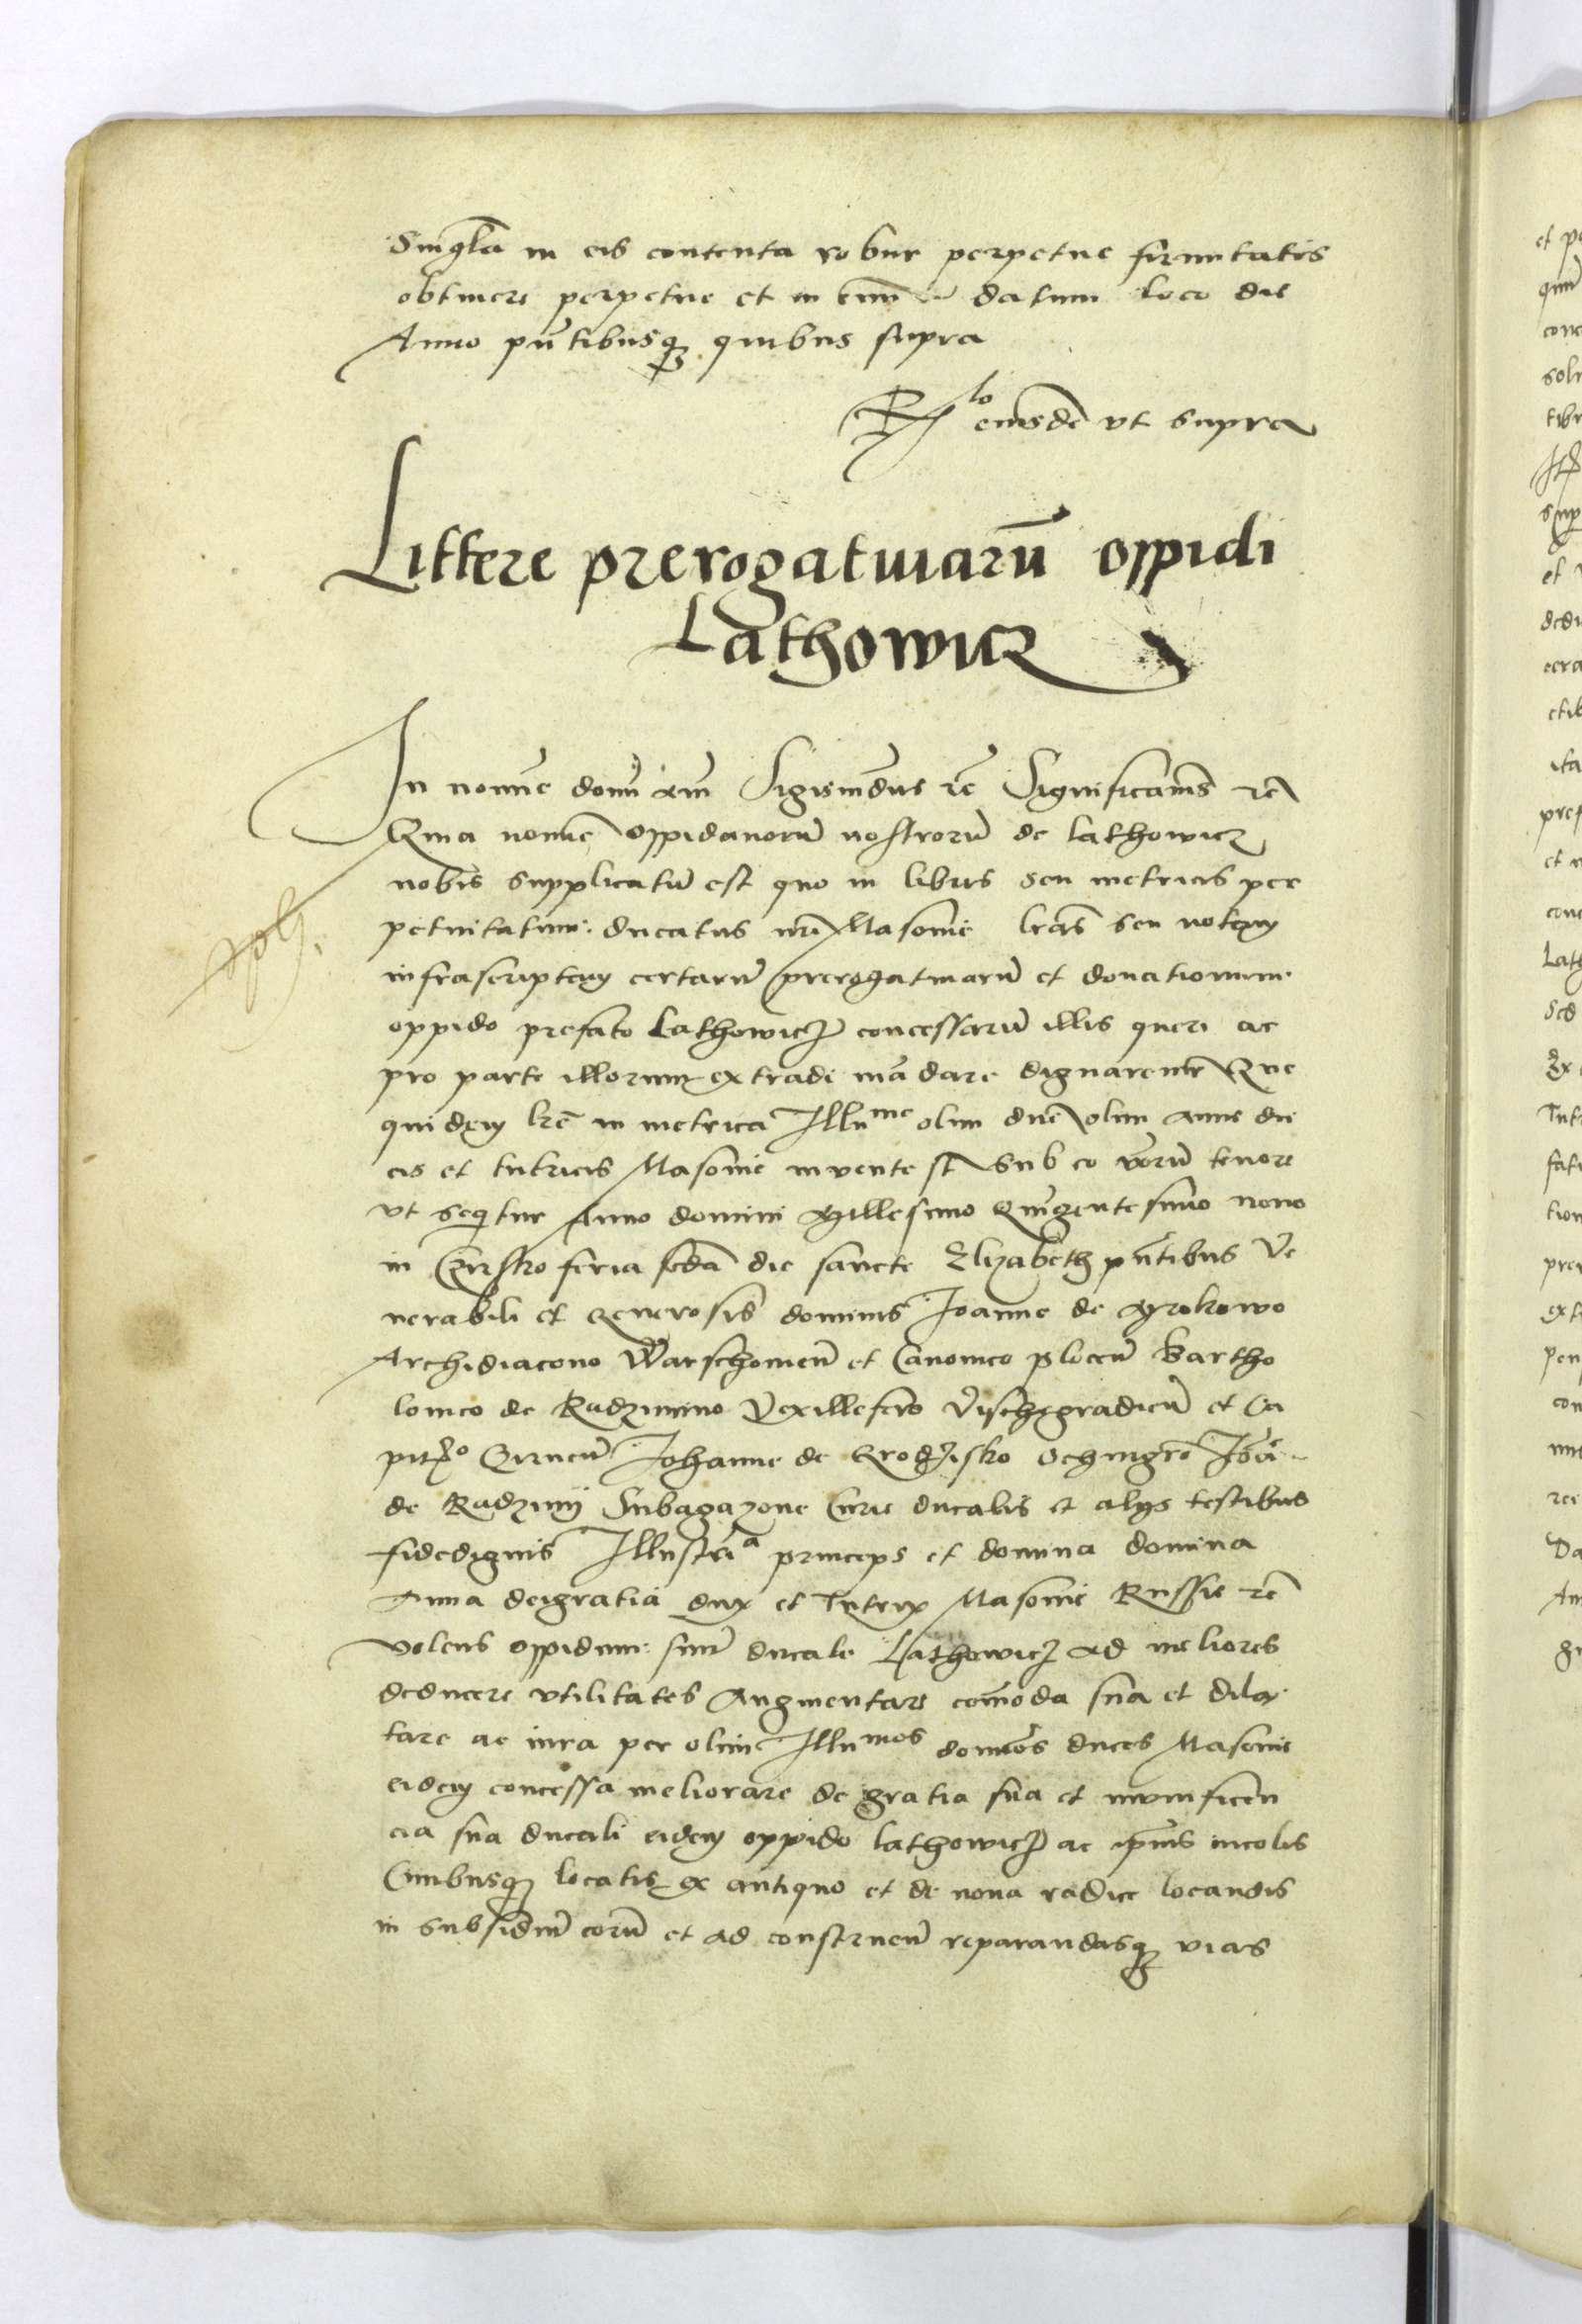 Singula in eis contenta robur perpetue firmitatis
obtinere perpetue et in euum datum loco die
Anno pn̄tibusqꝫ quibus supra
R̃lo eiusdē vt supra
Littere prerogatiuiarū oppidi
Lathowicz
In nomine domī am̄ Sigismūdus rē Significamꝰ rē
Quia nomīe oppidanorū nostrorū de Lathowicz
nobis supplicatū est quo in libris seu metricis per
petuitatum ducatus nr̄i Masouie lr̄as seu notam
infrascriptam certarū prerogatiuarū et donationum
oppido prefato Lathowicz concessarū illis queri ac
pro parte illorum extradi mādare dignaremur Que
quidem lr̄e in metrica Illume olim dn̄e olim Anne du
cis et tutricis Masouie inuente st̄ sub eo verorū tenore
vt sequitur Anno domini Millesimo Quīgentesimo nono
in feria scd̄a die sancte Elizabeth pn̄tibus Ve
nerabili et Generosis dominis Joanne de Mrokowo
Archidiacono Warschouieñ et Canonico ploceñ Bartho
lomeo de Radzimino Vexillifero Vischegradieñ et Ca
pitꝫo Johanne de Grodzisko Joāē
de Radzimij Subagazone Curie ducalis et alijs testibus
fidedignis Illustrīa princeps et domina domina
Anna deigratia dux et Tutrix Masouie Russie rē
volens oppidum suū ducale Lathowicz ad meliores
deducere vtilitates Augmentare com̄oda sua et dila
tare ac iura per olim Illumos domīos duces Masouie
eidem concessa meliorare de gratia sua et munificen
cia sua ducali eidem oppido Lathowicz ac ip̄ius incolis
Ciuibusqꝫ locatis ex antiquo et de noua radice locandis
in subsidiū eorū et ad construeñ reparandasqꝫ vias